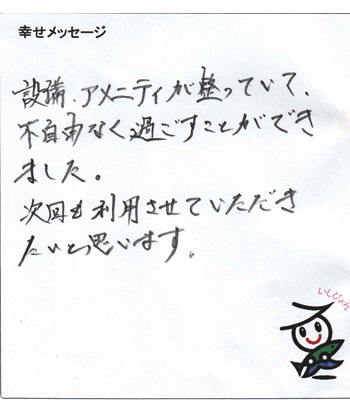 幸せメッセージ
設備・アメニティが整っていて、
不自由なく過ごすことができ
ました。
次回も利用させていただき
たいと思います。
いしぴょん